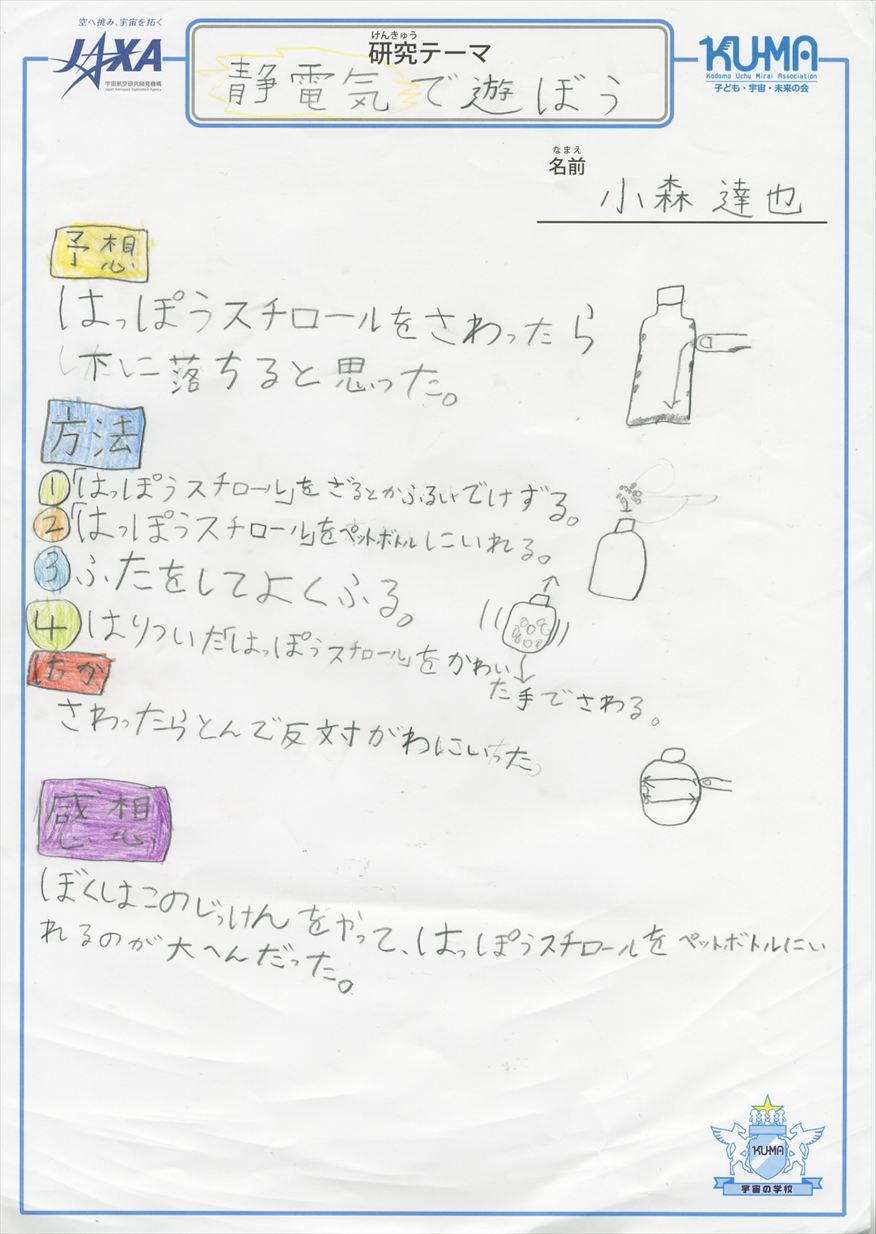 空へ挑み、宇宙を拓く
JAXA
宇宙航空研究開発機構
Japan Aerospace Exploration Agency
けんきゅう
研究テーマ
静電気で遊ぼう
KU-MA
Kodomo Uchu Mirai Association
子ども・宇宙・未来の会
なまえ
名前
小森達也
予想
はっぽうスチロールをさわったら
下に落ちると思った。
方法
①「はっぽうスチロール」をざるとかふるいでけずる。
②「はっぽうスチロール」をペットボトルにいれる。
③ふたをしてよくふる。
④はりついた「はっぽうスチロール」をかわい
た手でさわる。
けっか
さわったらとんで反対がわにいった。
感想
ぼくはこのじっけんをやって、はっぽうスチロールをペットボトルにい
れるのが大へんだった。
KU-MA
宇宙の学校